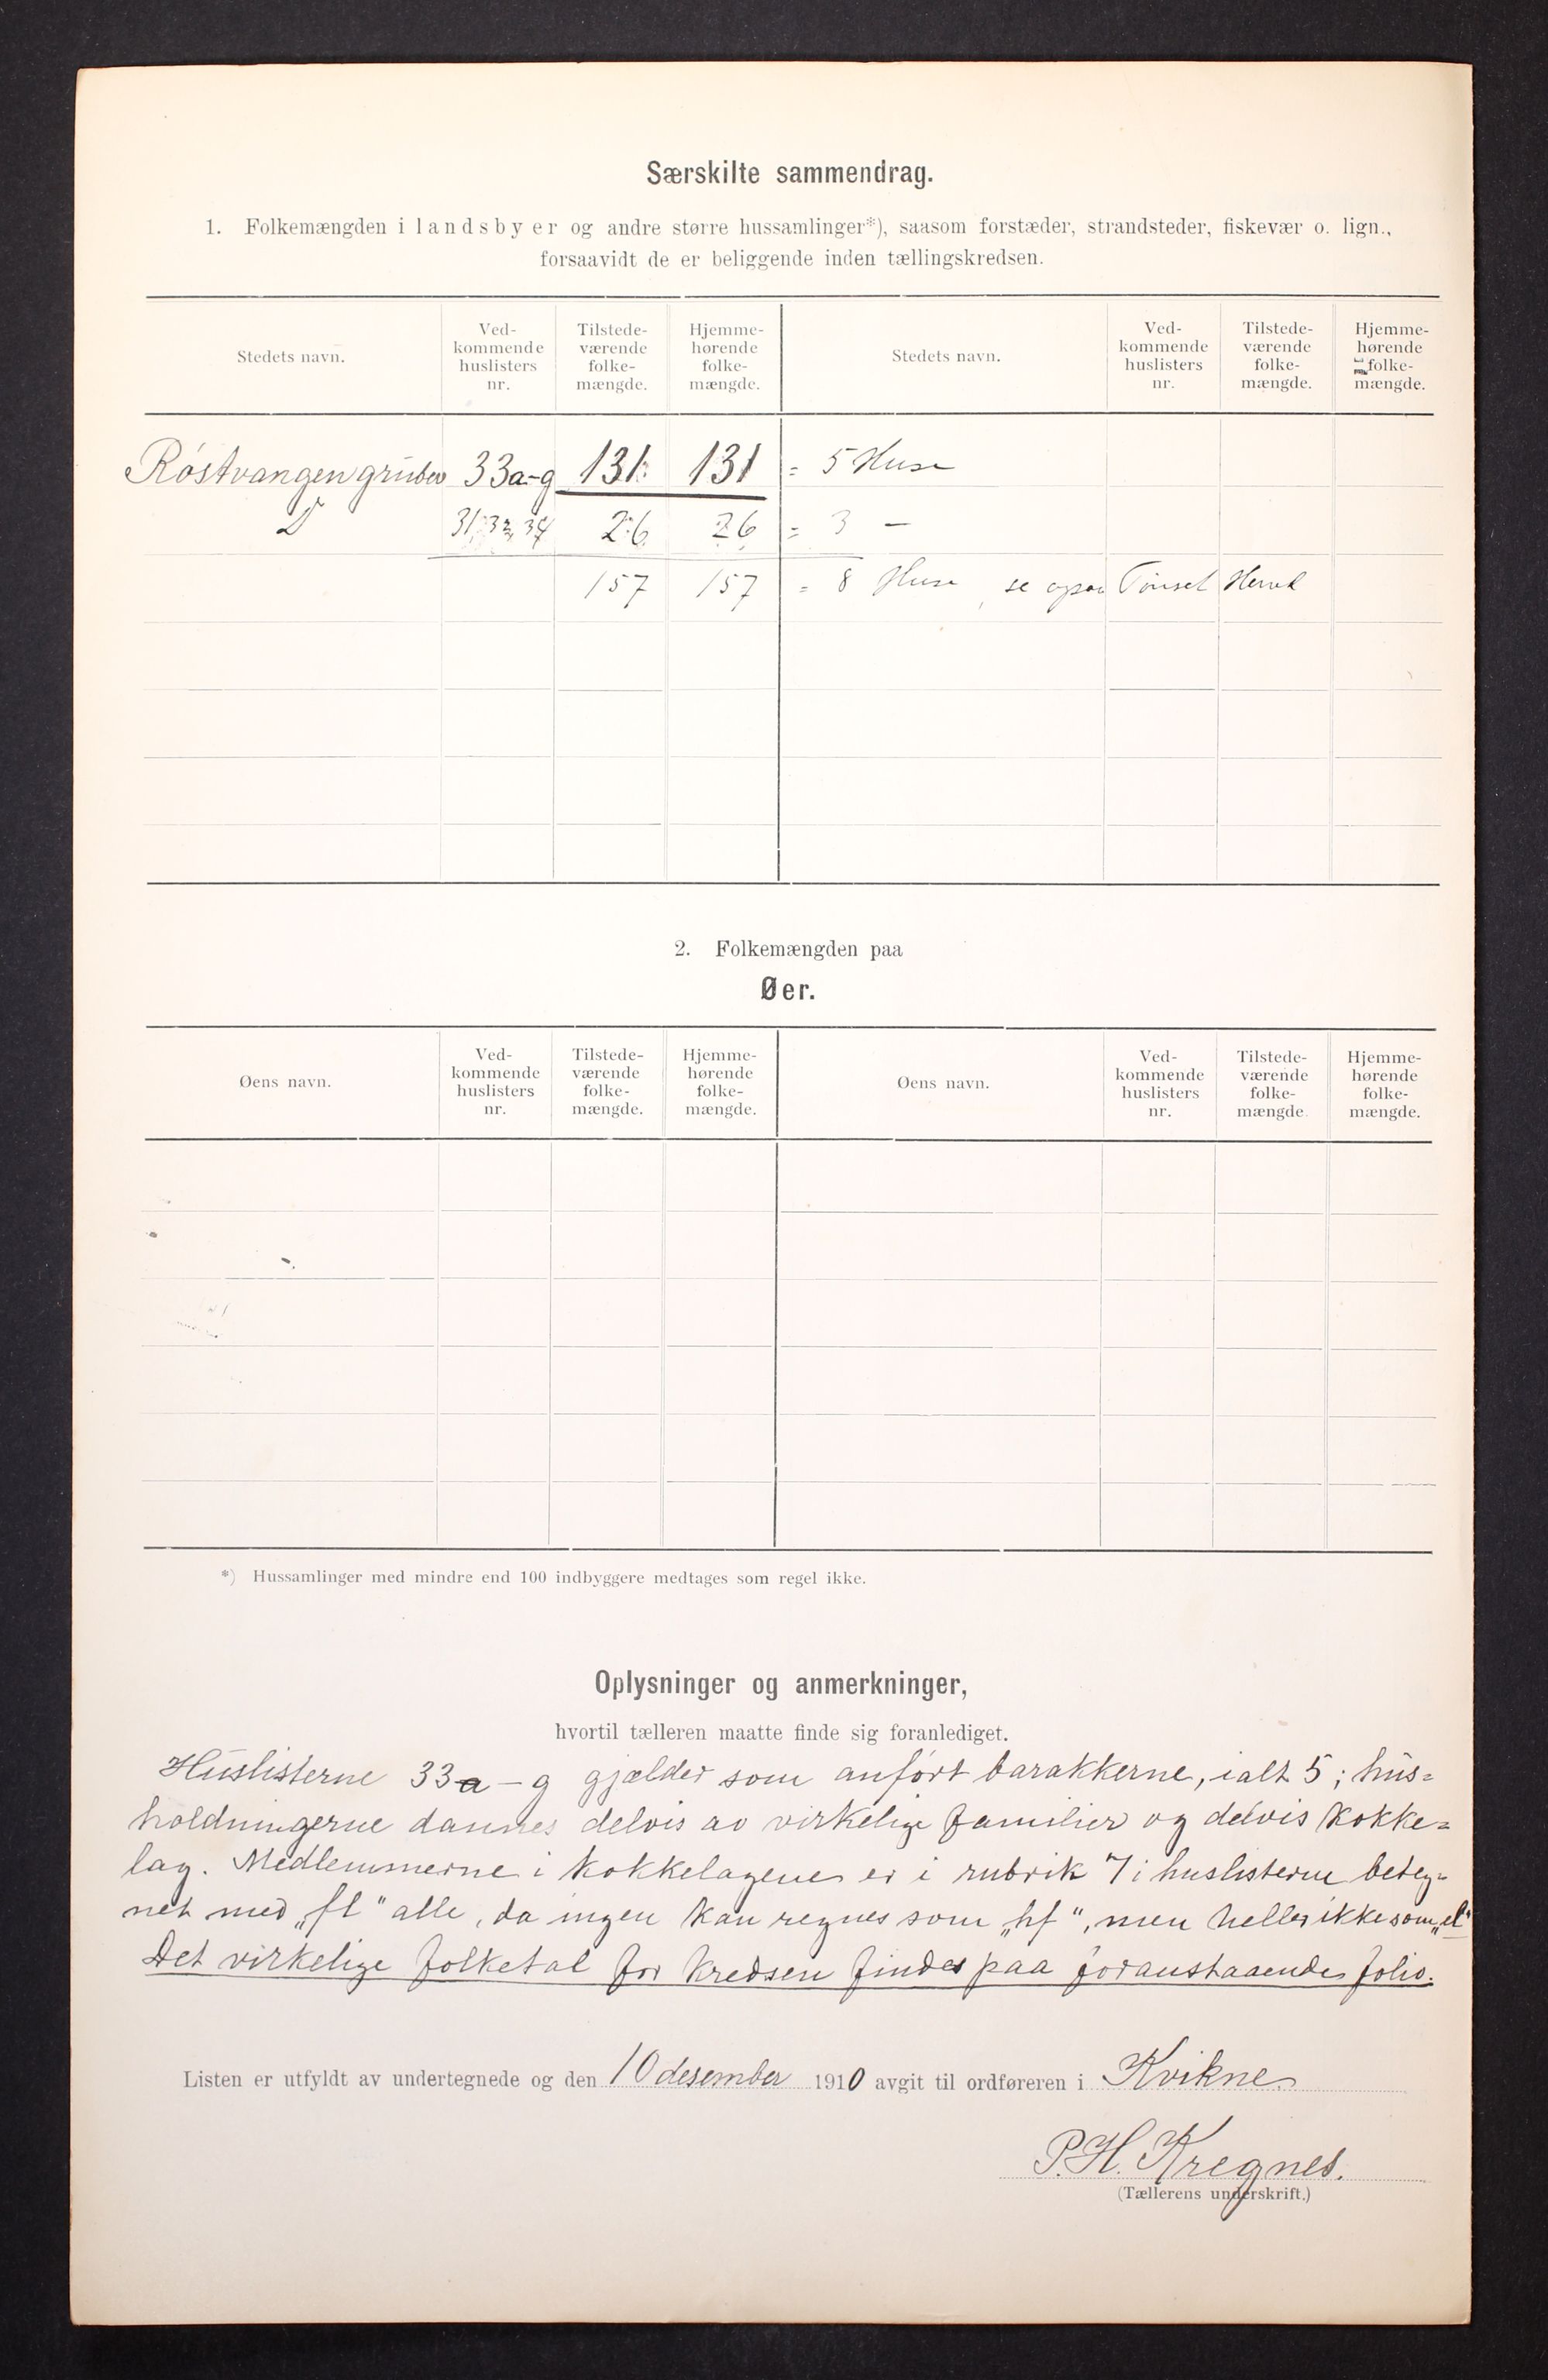 Særskilte sammendrag.
1. Folkemængden i landsbyer og andre større hussamlinger*), saasom forstæder, strandsteder, fiskevær o. lign.,
forsaavidt de er beliggende inden tællingskredsen.
Stedets navn. Ved-kommende huslisters nr. Tilstede-værende folke-mængde. Hjemme-hørende folke-mængde. Stedets navn. Ved-kommende huslisters nr. Tilstede-værende folke-mængde. Hjemme-hørende folke-mængde.
Røstvangen gruber 33a-g 131 131 = 5 Huse
31, 32, 34 26 26 = 3 —
157 157 = 8 Huse, se ogsaa Tönset Herred
2. Folkemængden paa
Øer.
Øens navn. Ved-kommende huslisters nr. Tilstede-værende folke-mængde. Hjemme-hørende folke-mængde. Øens navn. Ved-kommende huslisters nr. Tilstede-værende folke-mængde Hjemme-hørende folke-mængde.
*) Hussamlinger med mindre end 100 indbyggere medtages som regel ikke.
Oplysninger og anmerkninger,
hvortil tælleren maatte finde sig foranlediget.
Huslisterne 33a-g gjælder som anført barakkerne, ialt 5; hus=
holdningerne dannes delvis av virkelige familier og delvis kokke=
lag. Medlemmerne i kokkelagene er i rubrik 7 i huslisterne beteg=
net med „fl" alle, da ingen kan regnes som „hf", men heller ikke som „el"
Det virkelige folketal for kredsen findes paa foranstaaende folio.
Listen er utfyldt av undertegnede og den 10 desember 1910 avgit til ordføreren i Kvikne
P. H. Kregnes.
(Tællerens underskrift.)